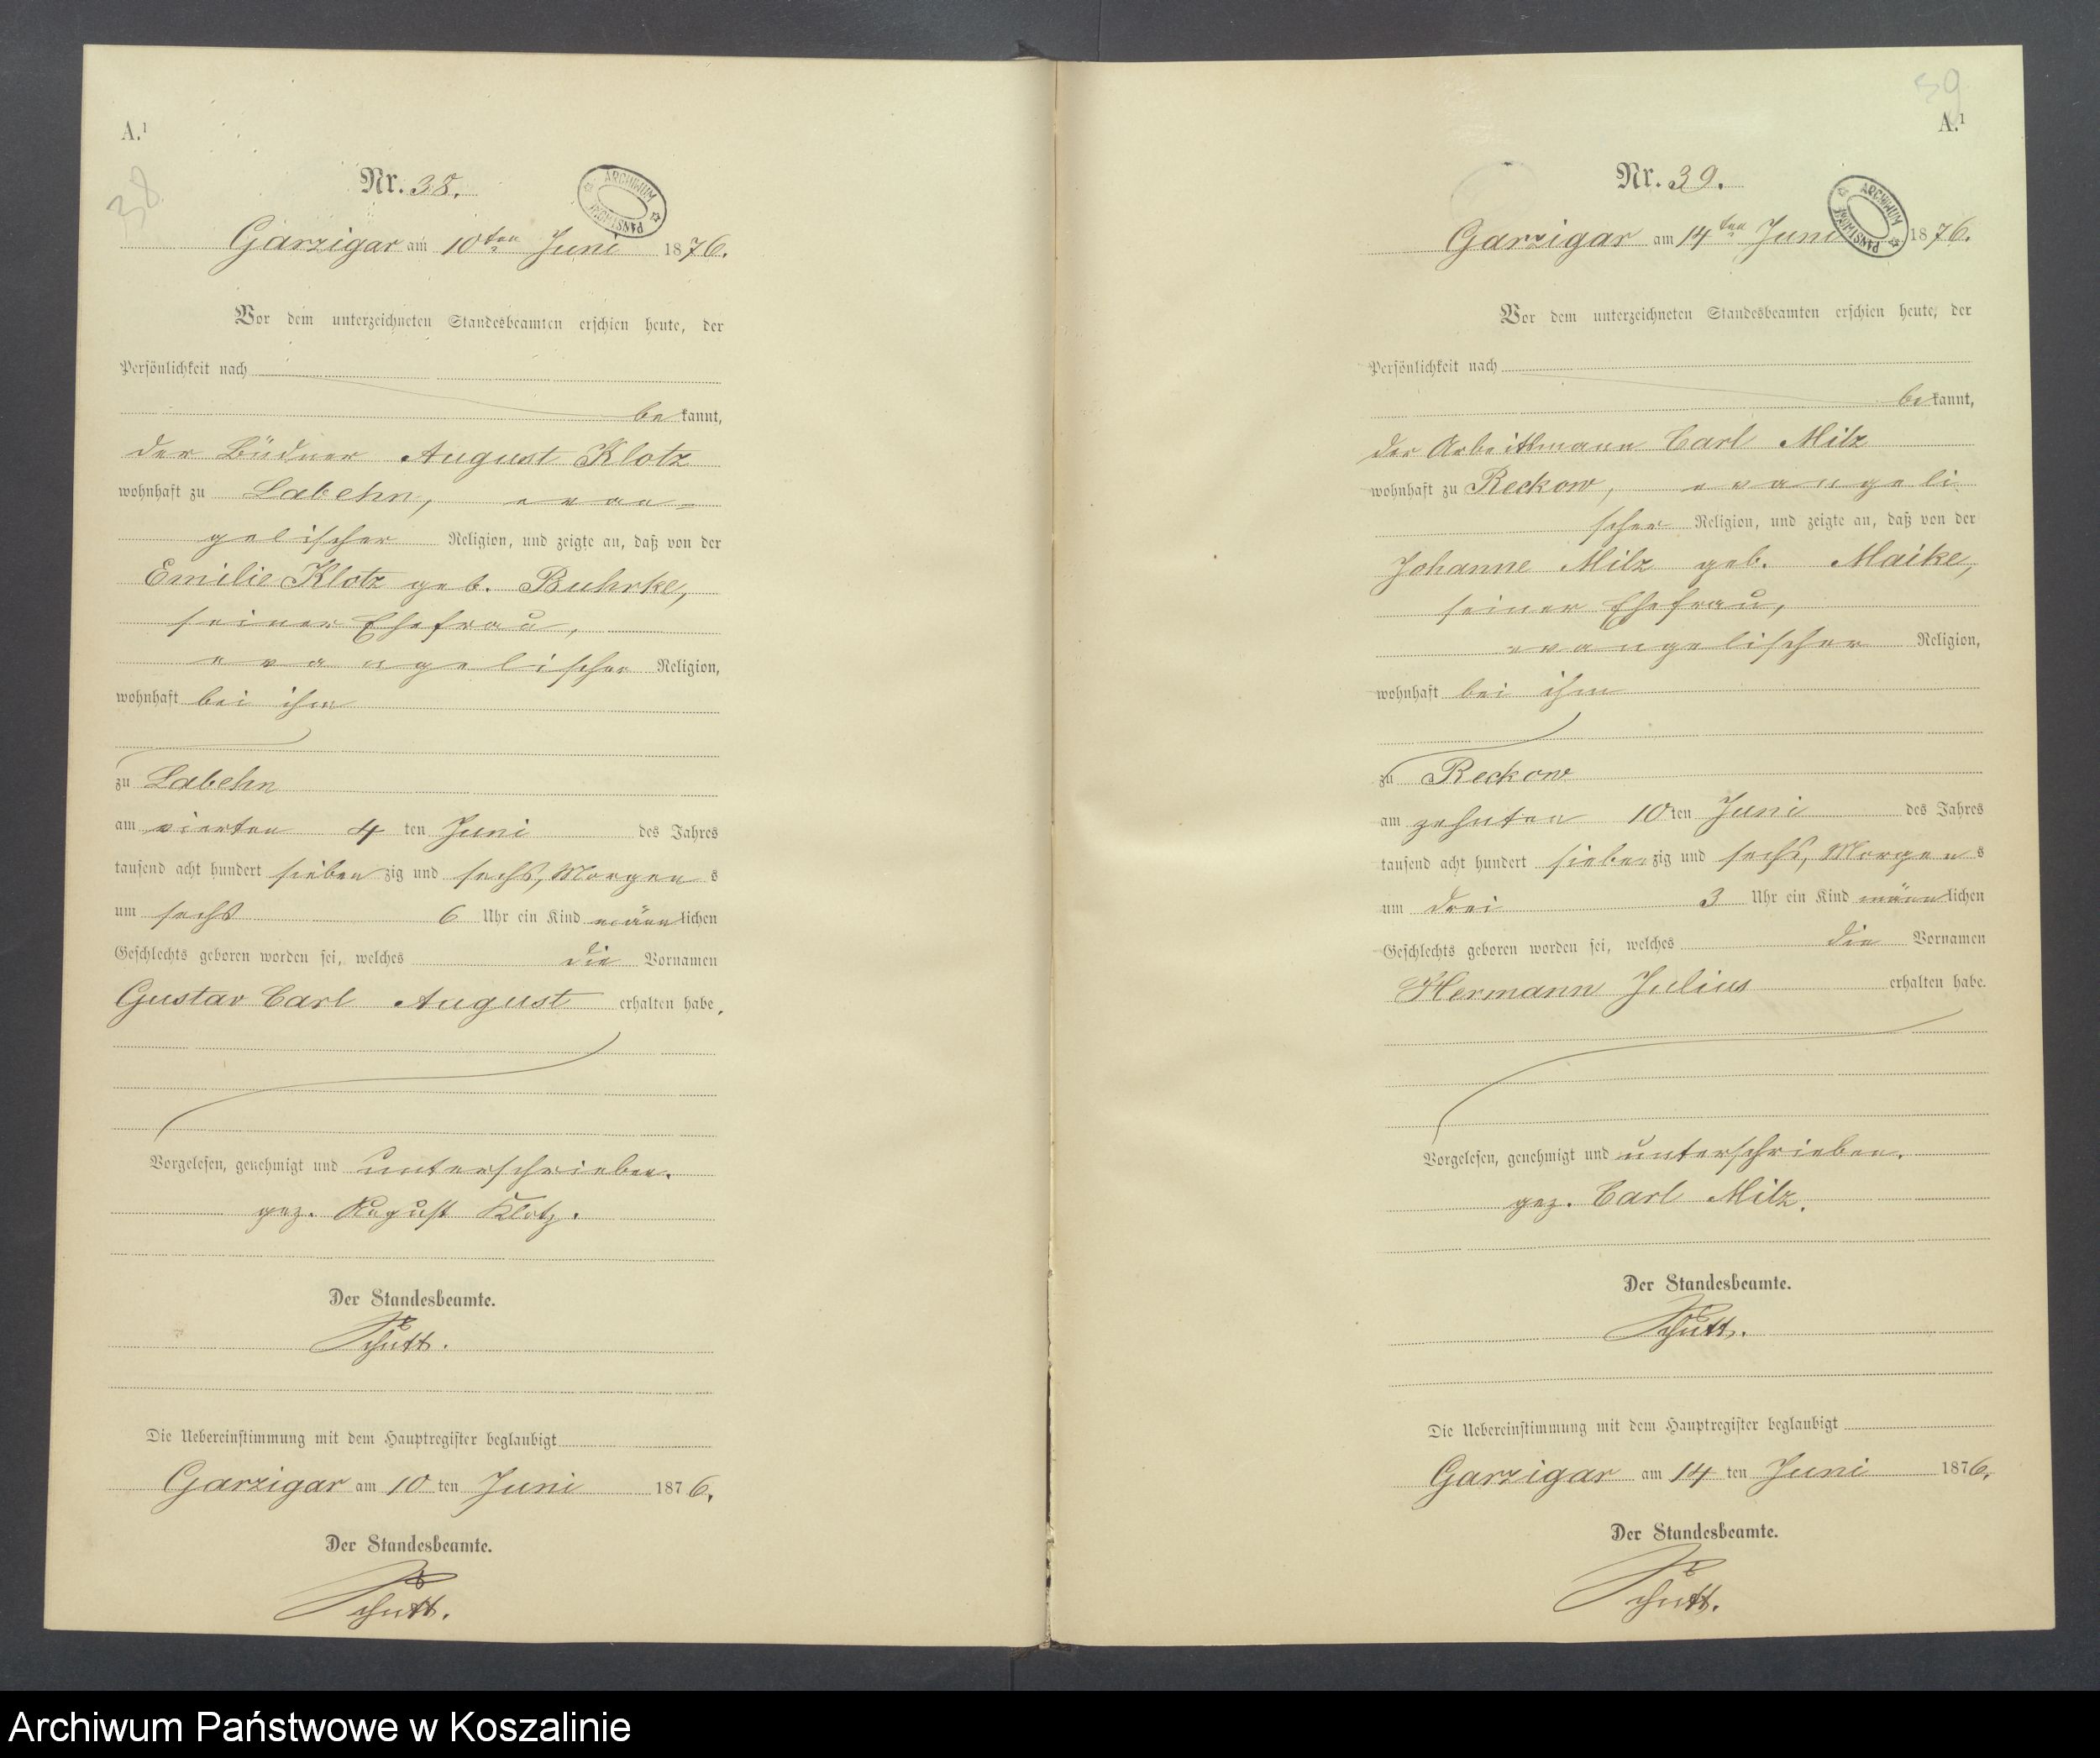 A.1
38
Nr. 38.
ARCHIWUM PAŃSTWOWE
Garzigar am 10ten Juni 1876.
Vor dem unterzeichneten Standesbeamten erschien heute, der
Persönlichkeit nach
bekannt,
der Büdner August Klotz
wohnhaft zu Labehn, evan=
gelischer Religion, und zeigte an, daß von der
Emilie Klotz geb. Buhrke,
seiner Ehefrau,
evangelischer Religion,
wohnhaft bei ihm
zu Labehn
am vierten 4 ten Juni des Jahres
tausend acht hundert siebenzig und sechs, Morgens
um sechs 6 Uhr ein Kind männlichen
Geschlechts geboren worden sei, welches die Vornamen
Gustav Carl August erhalten habe.
Vorgelesen, genehmigt und unterschrieben.
gez. August Klotz.
Der Standesbeamte.
Schütt.
Die Uebereinstimmung mit dem Hauptregister beglaubigt
Garzigar am 10 ten Juni 1876.
Der Standesbeamte.
Schütt.
39
A.1
Nr. 39.
ARCHIWUM PAŃSTWOWE
Garzigar am 14ten Juni 1876.
Vor dem unterzeichneten Standesbeamten erschien heute, der
Persönlichkeit nach
bekannt,
der Arbeitsmann Carl Milz
wohnhaft zu Reckow, evangeli
scher Religion, und zeigte an, daß von der
Johanne Milz geb. Maike,
seiner Ehefrau,
evangelischer Religion,
wohnhaft bei ihm
zu Reckow
am zehnten 10 ten Juni des Jahres
tausend acht hundert siebenzig und sechs, Morgens
um drei 3 Uhr ein Kind männlichen
Geschlechts geboren worden sei, welches die Vornamen
Hermann Julius erhalten habe.
Vorgelesen, genehmigt und unterschrieben.
gez. Carl Milz.
Der Standesbeamte.
Schütt.
Die Uebereinstimmung mit dem Hauptregister beglaubigt
Garzigar am 14 ten Juni 1876.
Der Standesbeamte.
Schütt.
Archiwum Państwowe w Koszalinie